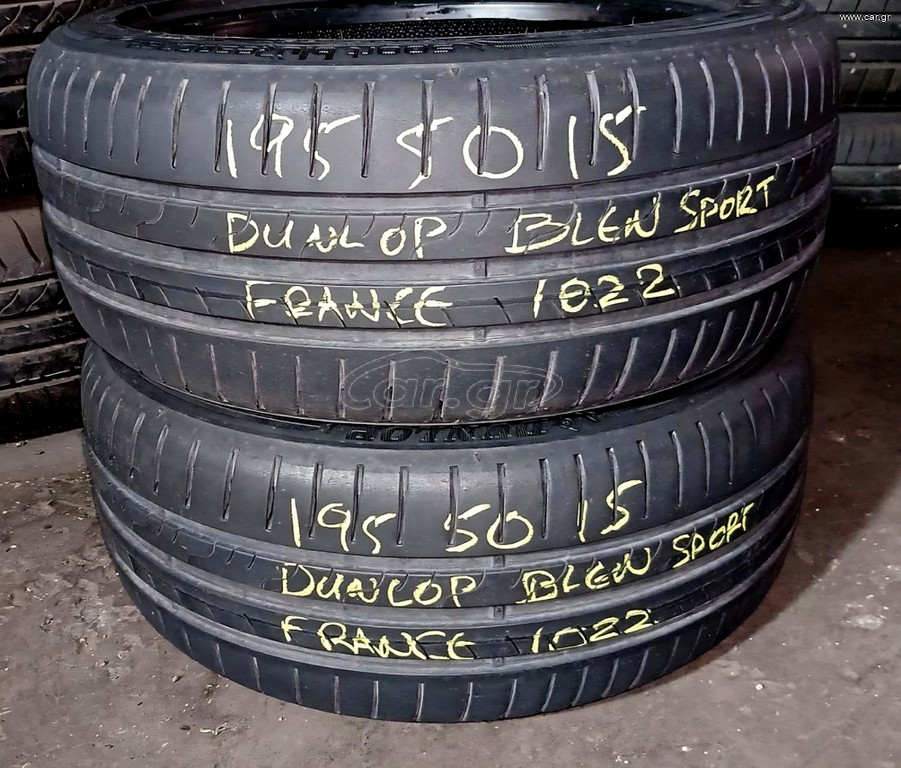 www.car.gr
195 50 15
DUNLOP BLEN SPORT
FRANCE 1022
car.gr
DUNLOP
195 50 15
DUNLOP BLEN SPORT
FRANCE 1022